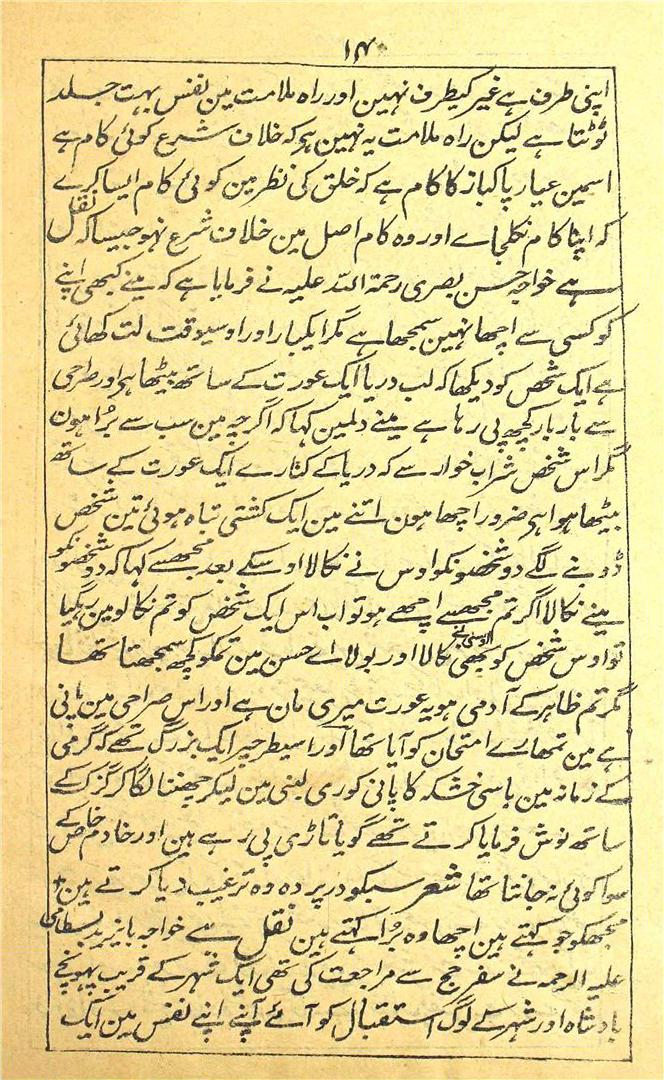 ۱۴۰
اپنی طرف ہے غیر کیطرف نہین اور راہ ملامت مین نفس بہت جلد
ٹوٹتا ہے لیکن راہ ملامت یہ نہین ہو کہ خلاف شرع کوئی کام ہے
اسمین عیار پاکباز کا کام ہے کہ خلق کی نظر مین کوئی کام ایسا کرے
کہ اپنا کام نکلجاے اور وہ کام اصل مین خلاف شرع نہو جیسا کہ نقل
ہے خواجہ حسن بصری رحمۃ اللہ علیہ نے فرمایا ہے کہ مینے کبھی اپنے
کو کسی سے اچھا نہین سمجھا ہے مگر ایکبار اور اوسیوقت لت کھائی
ہے ایک شخص کو دیکھا کہ لب دریا ایک عورت کے ساتھ بیٹھا ہو اور صراحی
سے بار بار کچھ پی رہا ہے مینے دلمین کہا کہ اگرچہ مین سب سے برا ہون
مگر اس شخص شراب خوار سے کہ دریا کے کنارے ایک عورت کے ساتھ
بیٹھا ہوا ہو ضرور اچھا ہون اتنے مین ایک کشتی تباہ ہوئی تین شخص
ڈوبنے لگے دو شخصونکو اوس نے نکالا اوسکے بعد مجھسے کہا کہ دو شخصونکو
مینے نکالا اگر تم مجھسے اچھے ہو تو اب اس ایک شخص کو تم نکالو مین رہگیا
تو اوس شخص کو بھی اوسی نے نکالا اور بولا اے حسن مین تمکو کچھ سمجھتا تھا
مگر تم ظاہر کے آدمی ہو یہ عورت میری مان ہے اور اس صراحی مین پانی
ہے مین تمھارے امتحان کو آیا تھا اور اسیطرحپر ایک بزرگ تھے کہ گرمی
کے زمانہ مین باسی خشکہ کا پانی کوری لبنی مین لیکر چھنتا لگا کر گزک کے
ساتھ نوش فرمایا کرتے تھے گویا تاڑی پی رہے ہین اور خادم خاص کے
سوا کوئی نہ جانتا تھا شعر سبکو در پردہ وہ ترغیب دیا کرتے ہین +
مجھکو جو کہتے ہین اچھا وہ برا کہتے ہین نقل ہے خواجہ بایزید بسطامی
علیہ الرحمہ نے سفر حج سے مراجعت کی تھی ایک شہر کے قریب پہونچے
بادشاہ اور شہر کے لوگ استقبال کو آئے آپنے اپنے نفس مین ایک